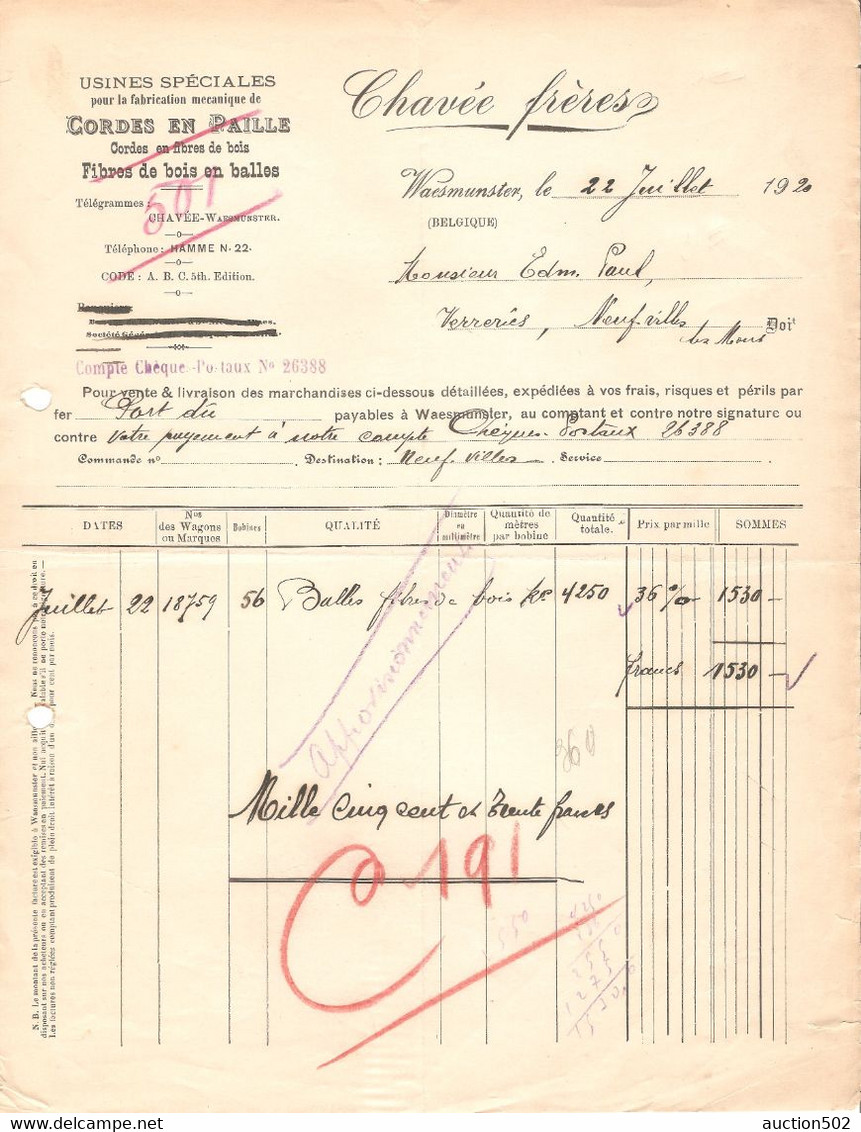 USINES SPÉCIALES
pour la fabrication mecanique de
CORDES EN PAILLE
Cordes en fibres de bois
Fibres de bois en balles
501
Télégrammes:
CHAVÉE-WAESMUNSTER.
Téléphone: HAMME N. 22.
CODE: A. B. C. 5th. Edition.
Compte Chèque-Postaux No 26388
Chavée frères
Waesmunster, le 22 Juillet 1920
(BELGIQUE)
Monsieur Edm. Paul,
Verreries, Neufvilles Doit
lez Mons
Pour vente & livraison des marchandises ci-dessous détaillées, expédiées à vos frais, risques et périls par
fer Port dû payables à Waesmunster, au comptant et contre notre signature ou
contre votre payement à notre compte Chèques Postaux 26388
Commande no Destination: Neuf villes Service
DATES
Nos des Wagons ou Marques
Bobines
QUALITÉ
Diamètre en millimètre
Quantité de mètres par bobine
Quantité totale.
Prix par mille
SOMMES
Juillet 22 18759 56 Balles fibres de bois ko 4250 36 % 1530 -
francs 1530 -
Approvisionnement
360
Mille Cinq cent et trente francs
191
550
4250
N. B. Le montant de la présente facture est exigible à Waesmunster et non
Les factures non réglées comptant produisent de plein droit intérêt à raison d'un pour cent par mois.
auction502